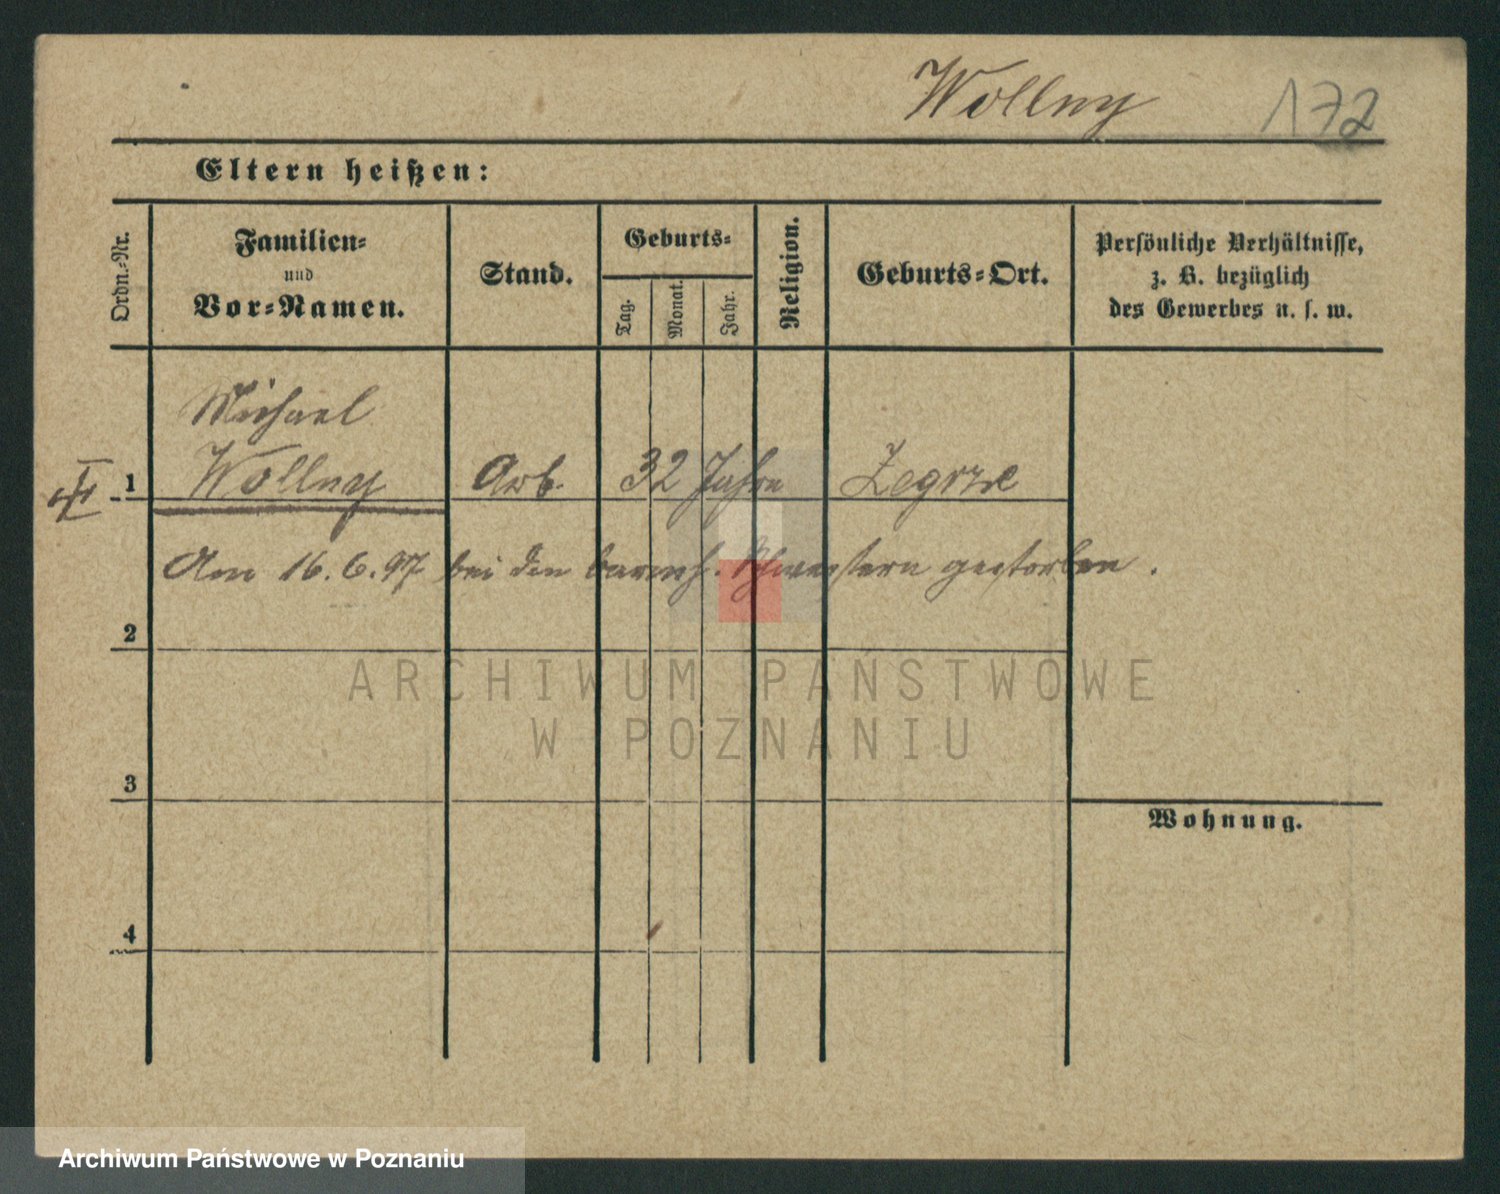 Wollny 172
Eltern heißen:
Ordn.-Nr.
Familien-
und
Vor-Namen.
Stand.
Geburts-
Tag.
Monat.
Jahr.
Religion.
Geburts-Ort.
Persönliche Verhältnisse,
z. B. bezüglich
des Gewerbes u. s. w.
Michael
1 Wollny Arb. 32 Jahre Zegrze
Am 16.6.97 bei den barmh. Schwestern gestorben.
2
ARCHIWUM PAŃSTWOWE
W POZNANIU
3
Wohnung.
4
Archiwum Państwowe w Poznaniu